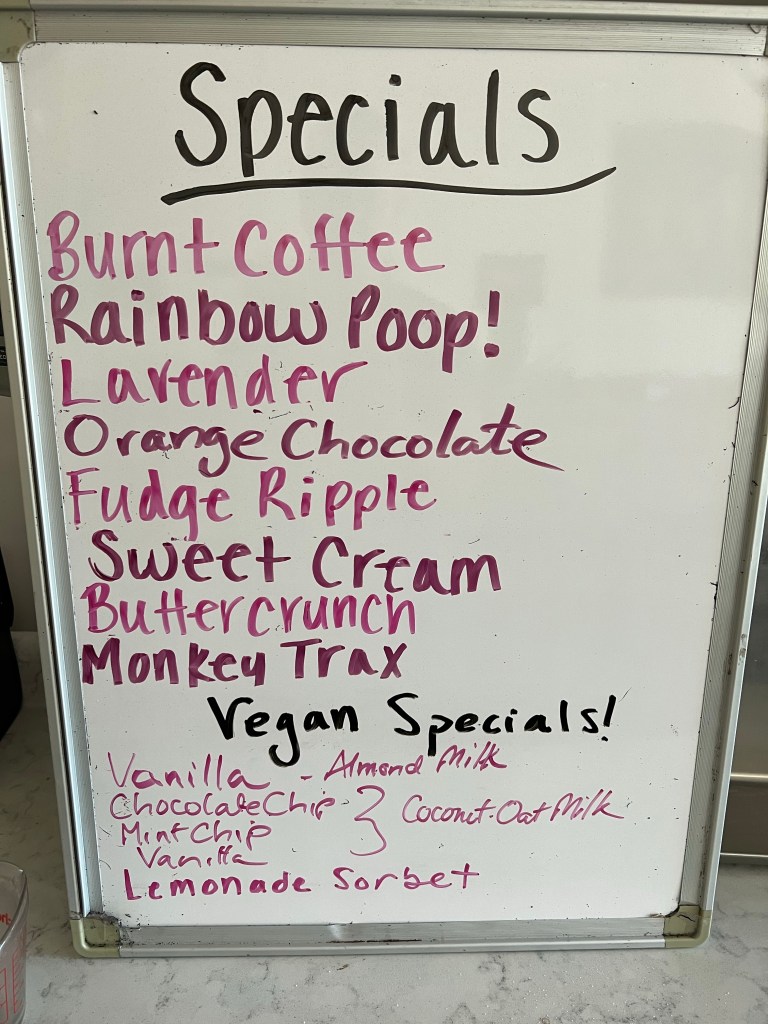 Specials
Burnt Coffee
Rainbow Poop!
Lavender
Orange Chocolate
Fudge Ripple
Sweet Cream
Buttercrunch
Monkey Trax
Vegan Specials!
Vanilla - Almond Milk
Chocolate Chip
Mint Chip } Coconut-Oat Milk
Vanilla
Lemonade Sorbet